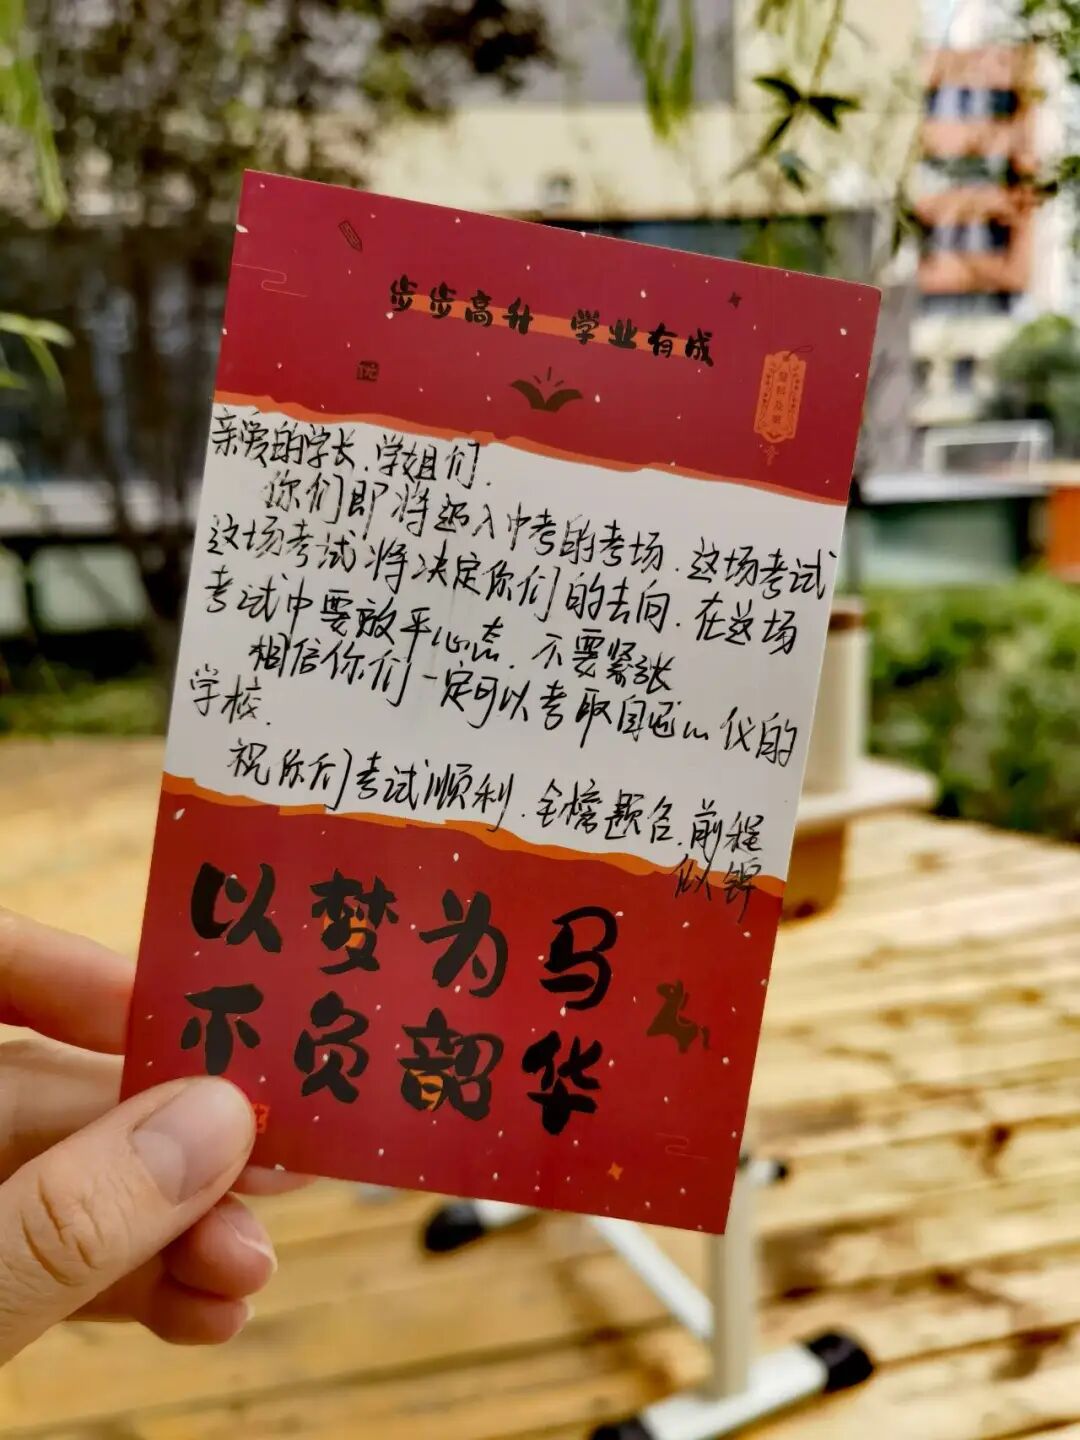 步步高升 学业有成
优
亲爱的学长、学姐们.
你们即将迈入中考的考场.这场考试
这场考试将决定你们的去向.在这场
考试中要放平心态.不要紧张
相信你们一定可以考取自己心仪的
学校.
祝你们考试顺利.金榜题名.前程
似锦
以梦为马
不负韶华